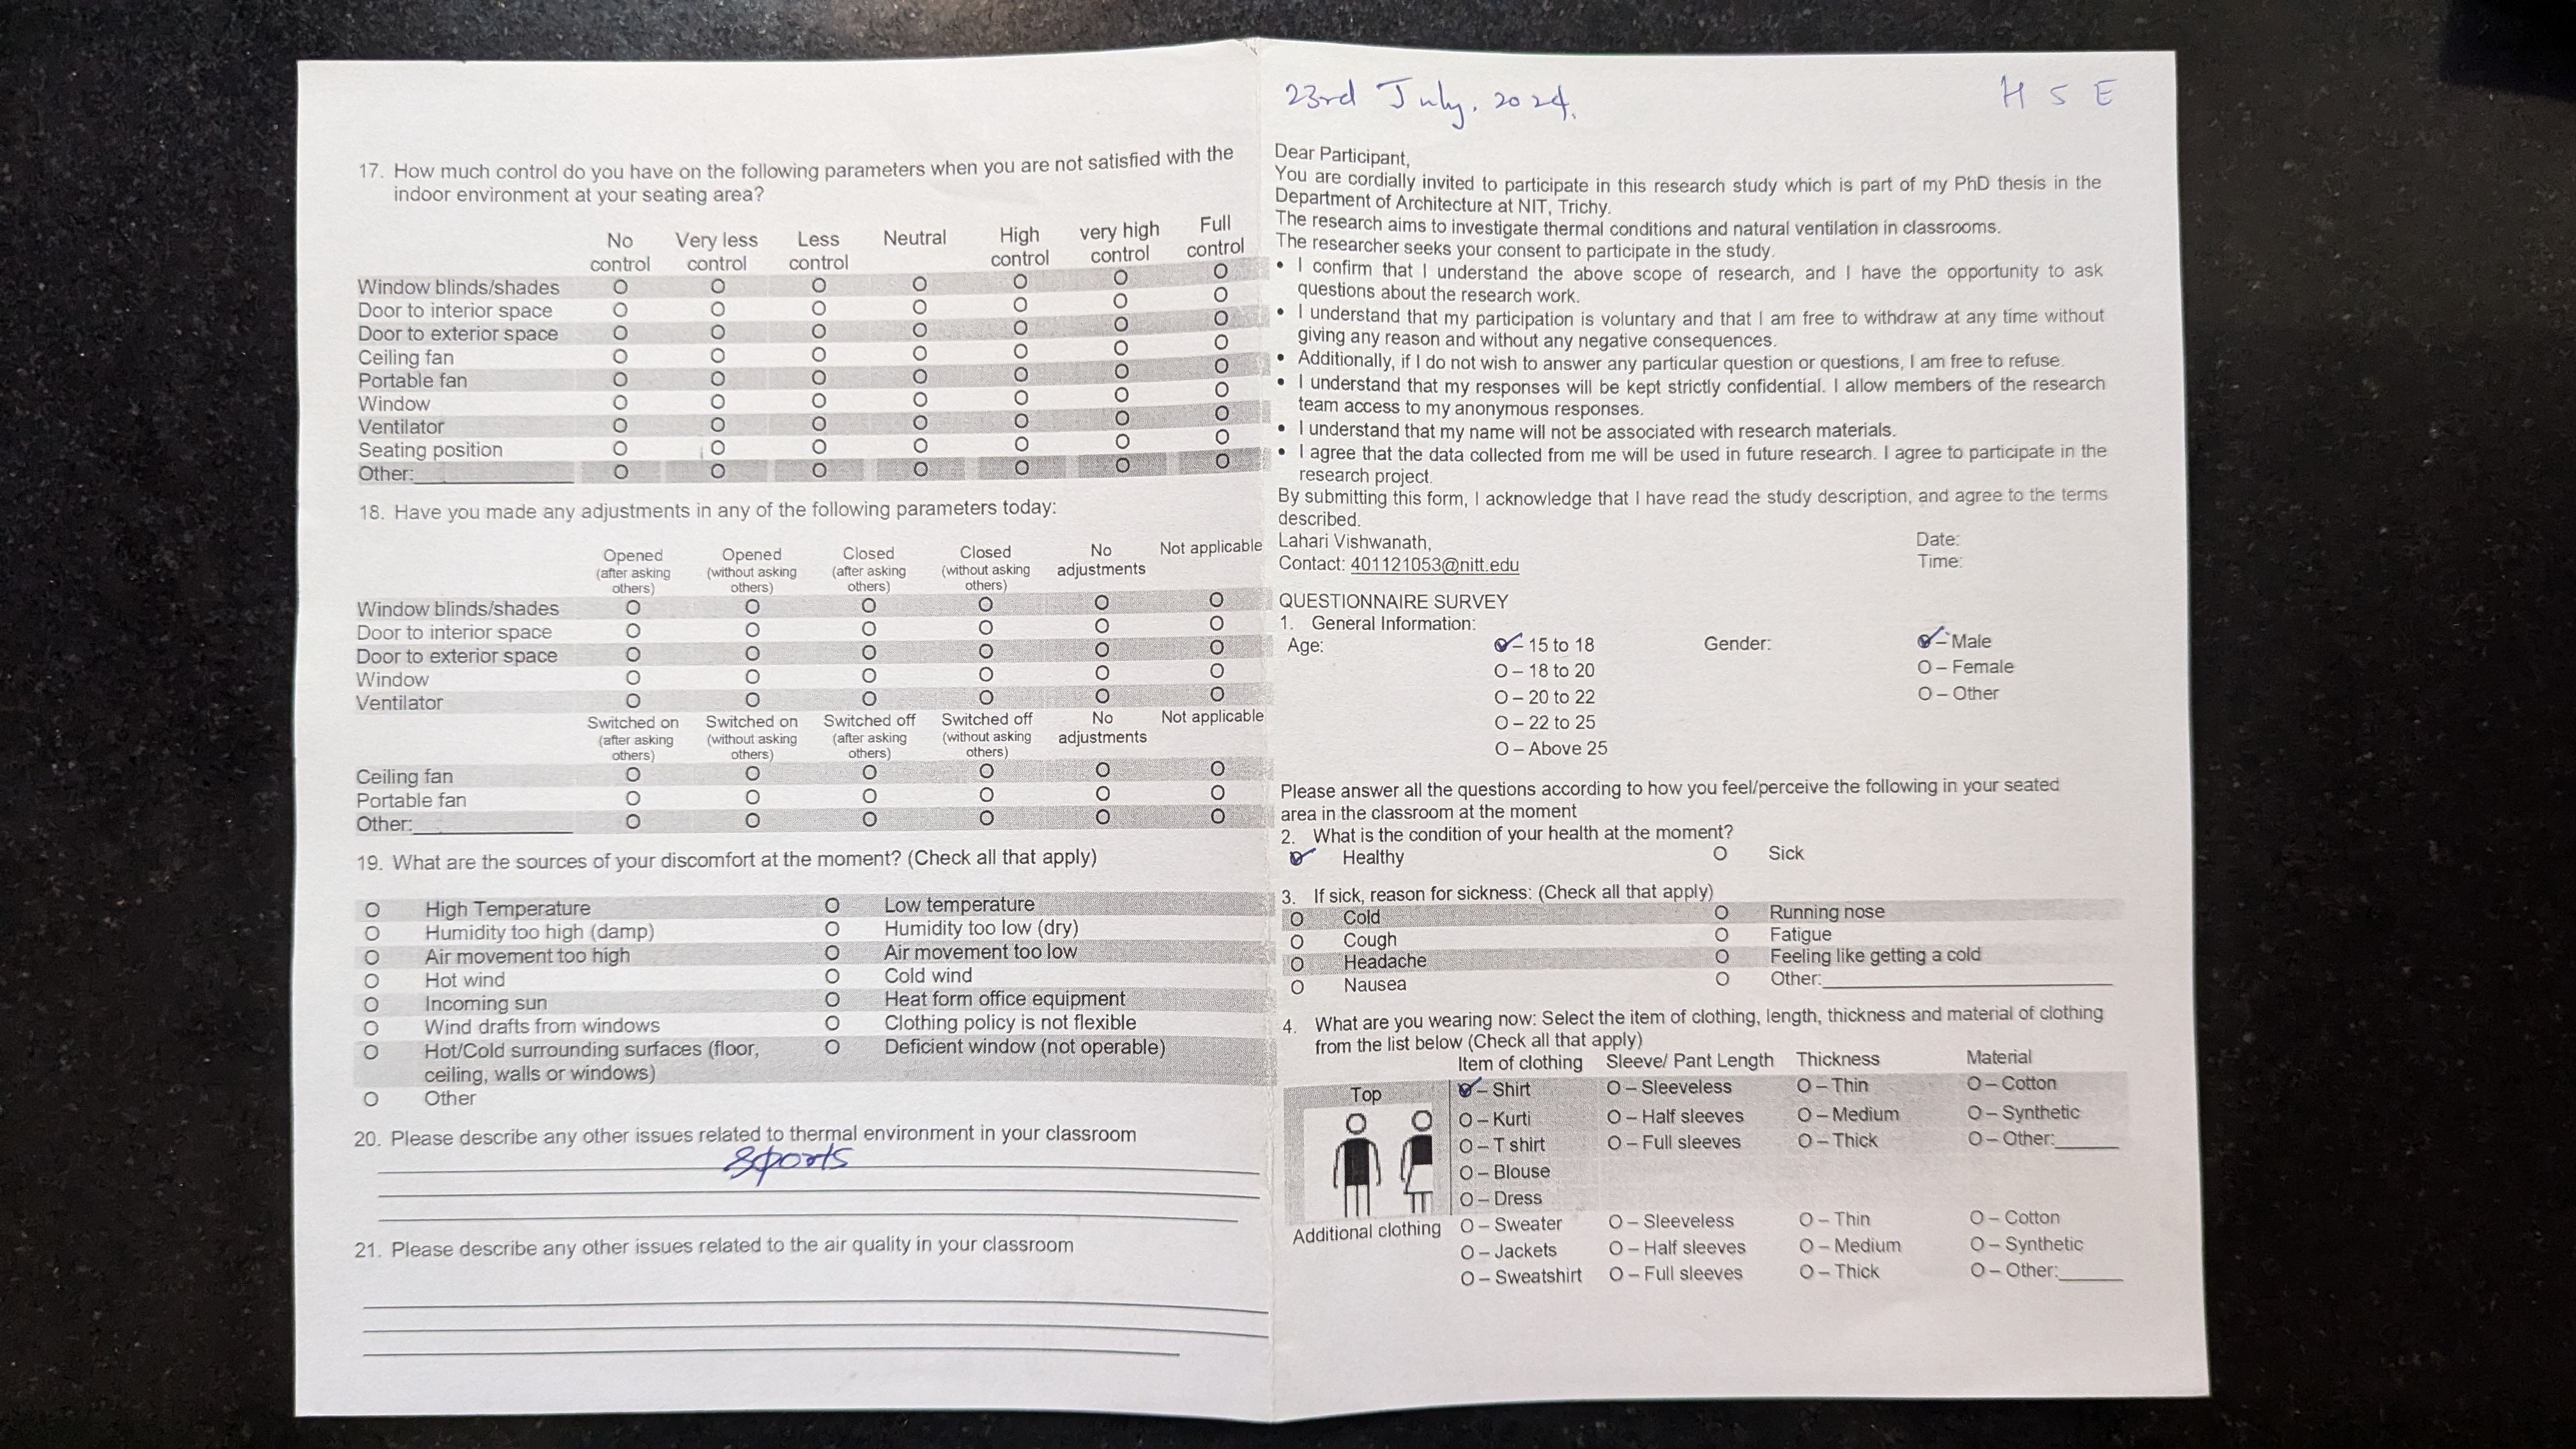 17. How much control do you have on the following parameters when you are not satisfied with the
indoor environment at your seating area?
No control Very less control Less control Neutral High control very high control Full control
Window blinds/shades O O O O O O O
Door to interior space O O O O O O O
Door to exterior space O O O O O O O
Ceiling fan O O O O O O O
Portable fan O O O O O O O
Window O O O O O O O
Ventilator O O O O O O O
Seating position O O O O O O O
Other:____________ O O O O O O O
18. Have you made any adjustments in any of the following parameters today:
Opened (after asking others) Opened (without asking others) Closed (after asking others) Closed (without asking others) No adjustments Not applicable
Window blinds/shades O O O O O O
Door to interior space O O O O O O
Door to exterior space O O O O O O
Window O O O O O O
Ventilator O O O O O O
Switched on (after asking others) Switched on (without asking others) Switched off (after asking others) Switched off (without asking others) No adjustments Not applicable
Ceiling fan O O O O O O
Portable fan O O O O O O
Other:____________ O O O O O O
19. What are the sources of your discomfort at the moment? (Check all that apply)
O High Temperature O Low temperature
O Humidity too high (damp) O Humidity too low (dry)
O Air movement too high O Air movement too low
O Hot wind O Cold wind
O Incoming sun O Heat form office equipment
O Wind drafts from windows O Clothing policy is not flexible
O Hot/Cold surrounding surfaces (floor, O Deficient window (not operable)
ceiling, walls or windows)
O Other
20. Please describe any other issues related to thermal environment in your classroom
sports
21. Please describe any other issues related to the air quality in your classroom
23rd July. 2024. H S E
Dear Participant,
You are cordially invited to participate in this research study which is part of my PhD thesis in the
Department of Architecture at NIT, Trichy.
The research aims to investigate thermal conditions and natural ventilation in classrooms.
The researcher seeks your consent to participate in the study.
• I confirm that I understand the above scope of research, and I have the opportunity to ask
questions about the research work.
• I understand that my participation is voluntary and that I am free to withdraw at any time without
giving any reason and without any negative consequences.
• Additionally, if I do not wish to answer any particular question or questions, I am free to refuse.
• I understand that my responses will be kept strictly confidential. I allow members of the research
team access to my anonymous responses.
• I understand that my name will not be associated with research materials.
• I agree that the data collected from me will be used in future research. I agree to participate in the
research project.
By submitting this form, I acknowledge that I have read the study description, and agree to the terms
described.
Lahari Vishwanath, Date:
Contact: 401121053@nitt.edu Time:
QUESTIONNAIRE SURVEY
1. General Information:
Age: ✓ – 15 to 18 Gender: ✓ – Male
O – 18 to 20 O – Female
O – 20 to 22 O – Other
O – 22 to 25
O – Above 25
Please answer all the questions according to how you feel/perceive the following in your seated
area in the classroom at the moment
2. What is the condition of your health at the moment?
✓ Healthy O Sick
3. If sick, reason for sickness: (Check all that apply)
O Cold O Running nose
O Cough O Fatigue
O Headache O Feeling like getting a cold
O Nausea O Other:____________
4. What are you wearing now: Select the item of clothing, length, thickness and material of clothing
from the list below (Check all that apply)
Item of clothing Sleeve/ Pant Length Thickness Material
Top ✓ – Shirt O – Sleeveless O – Thin O – Cotton
O – Kurti O – Half sleeves O – Medium O – Synthetic
O – T shirt O – Full sleeves O – Thick O – Other:______
O – Blouse
O – Dress
Additional clothing O – Sweater O – Sleeveless O – Thin O – Cotton
O – Jackets O – Half sleeves O – Medium O – Synthetic
O – Sweatshirt O – Full sleeves O – Thick O – Other:______